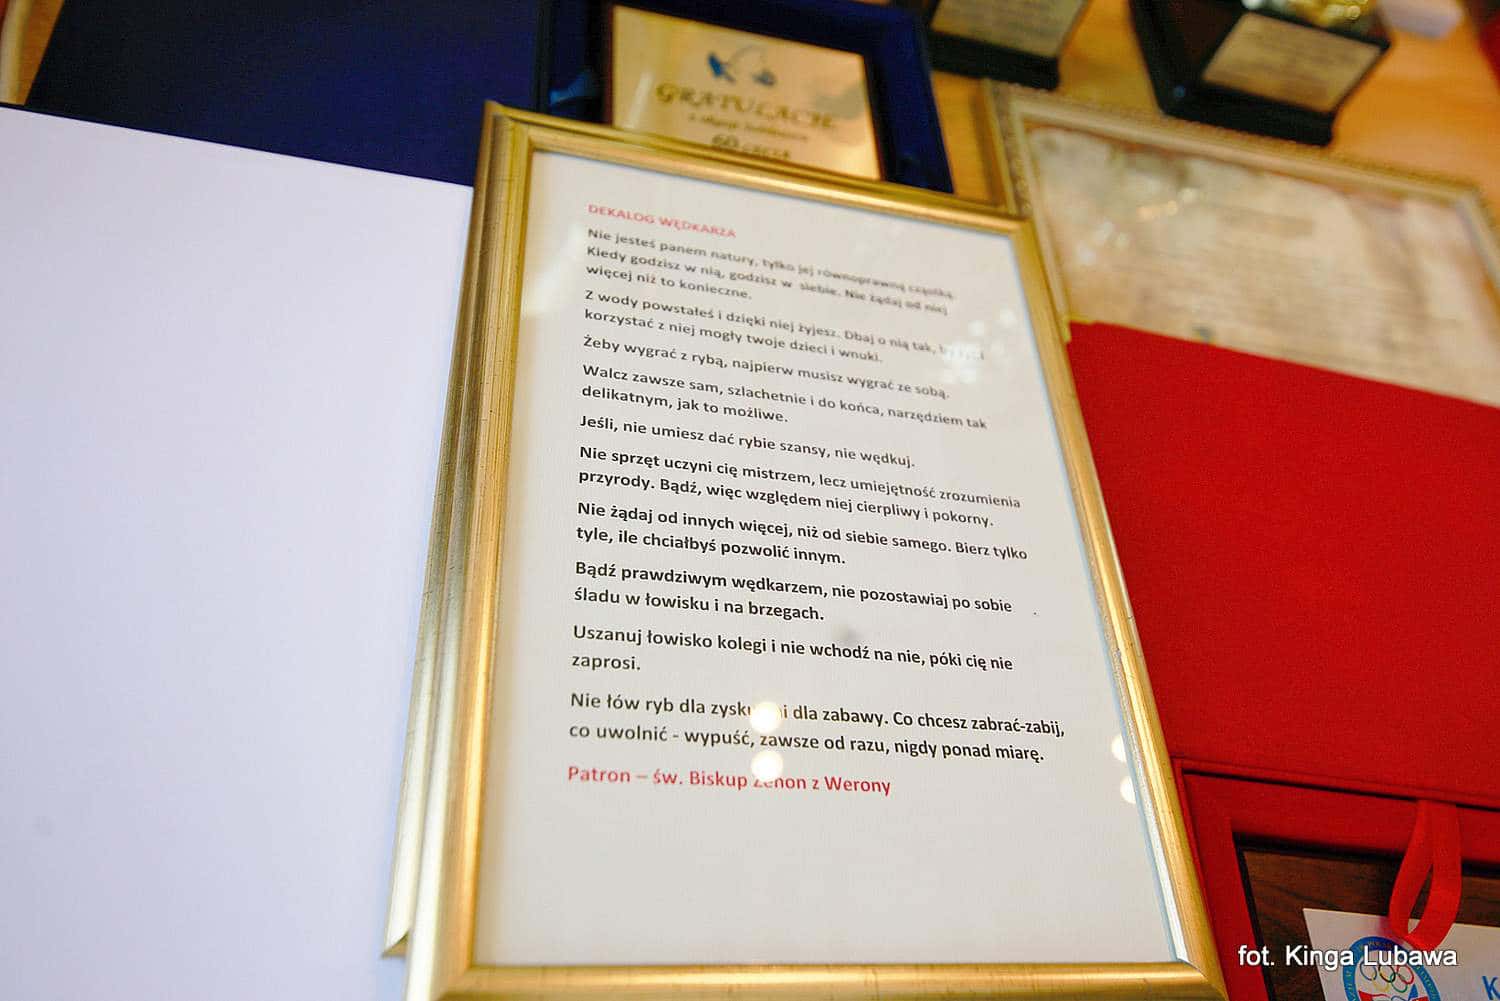 GRATULACJE
60
DEKALOG WĘDKARZA
Nie jesteś panem natury, tylko jej równoprawną cząstką.
Kiedy godzisz w nią, godzisz w siebie. Nie żądaj od niej
więcej niż to konieczne.
Z wody powstałeś i dzięki niej żyjesz. Dbaj o nią tak, by
korzystać z niej mogły twoje dzieci i wnuki.
Żeby wygrać z rybą, najpierw musisz wygrać ze sobą.
Walcz zawsze sam, szlachetnie i do końca, narzędziem tak
delikatnym, jak to możliwe.
Jeśli, nie umiesz dać rybie szansy, nie wędkuj.
Nie sprzęt uczyni cię mistrzem, lecz umiejętność zrozumienia
przyrody. Bądź, więc względem niej cierpliwy i pokorny.
Nie żądaj od innych więcej, niż od siebie samego. Bierz tylko
tyle, ile chciałbyś pozwolić innym.
Bądź prawdziwym wędkarzem, nie pozostawiaj po sobie
śladu w łowisku i na brzegach.
Uszanuj łowisko kolegi i nie wchodź na nie, póki cię nie
zaprosi.
Nie łów ryb dla zysku ni dla zabawy. Co chcesz zabrać-zabij,
co uwolnić - wypuść, zawsze od razu, nigdy ponad miarę.
Patron – św. Biskup Zenon z Werony
fot. Kinga Lubawa
K